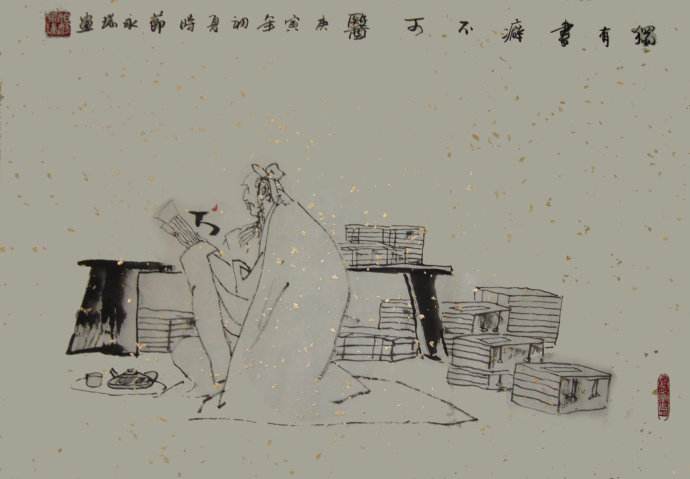 獨有書癖不可醫庚寅年初夏时節永瑞畫